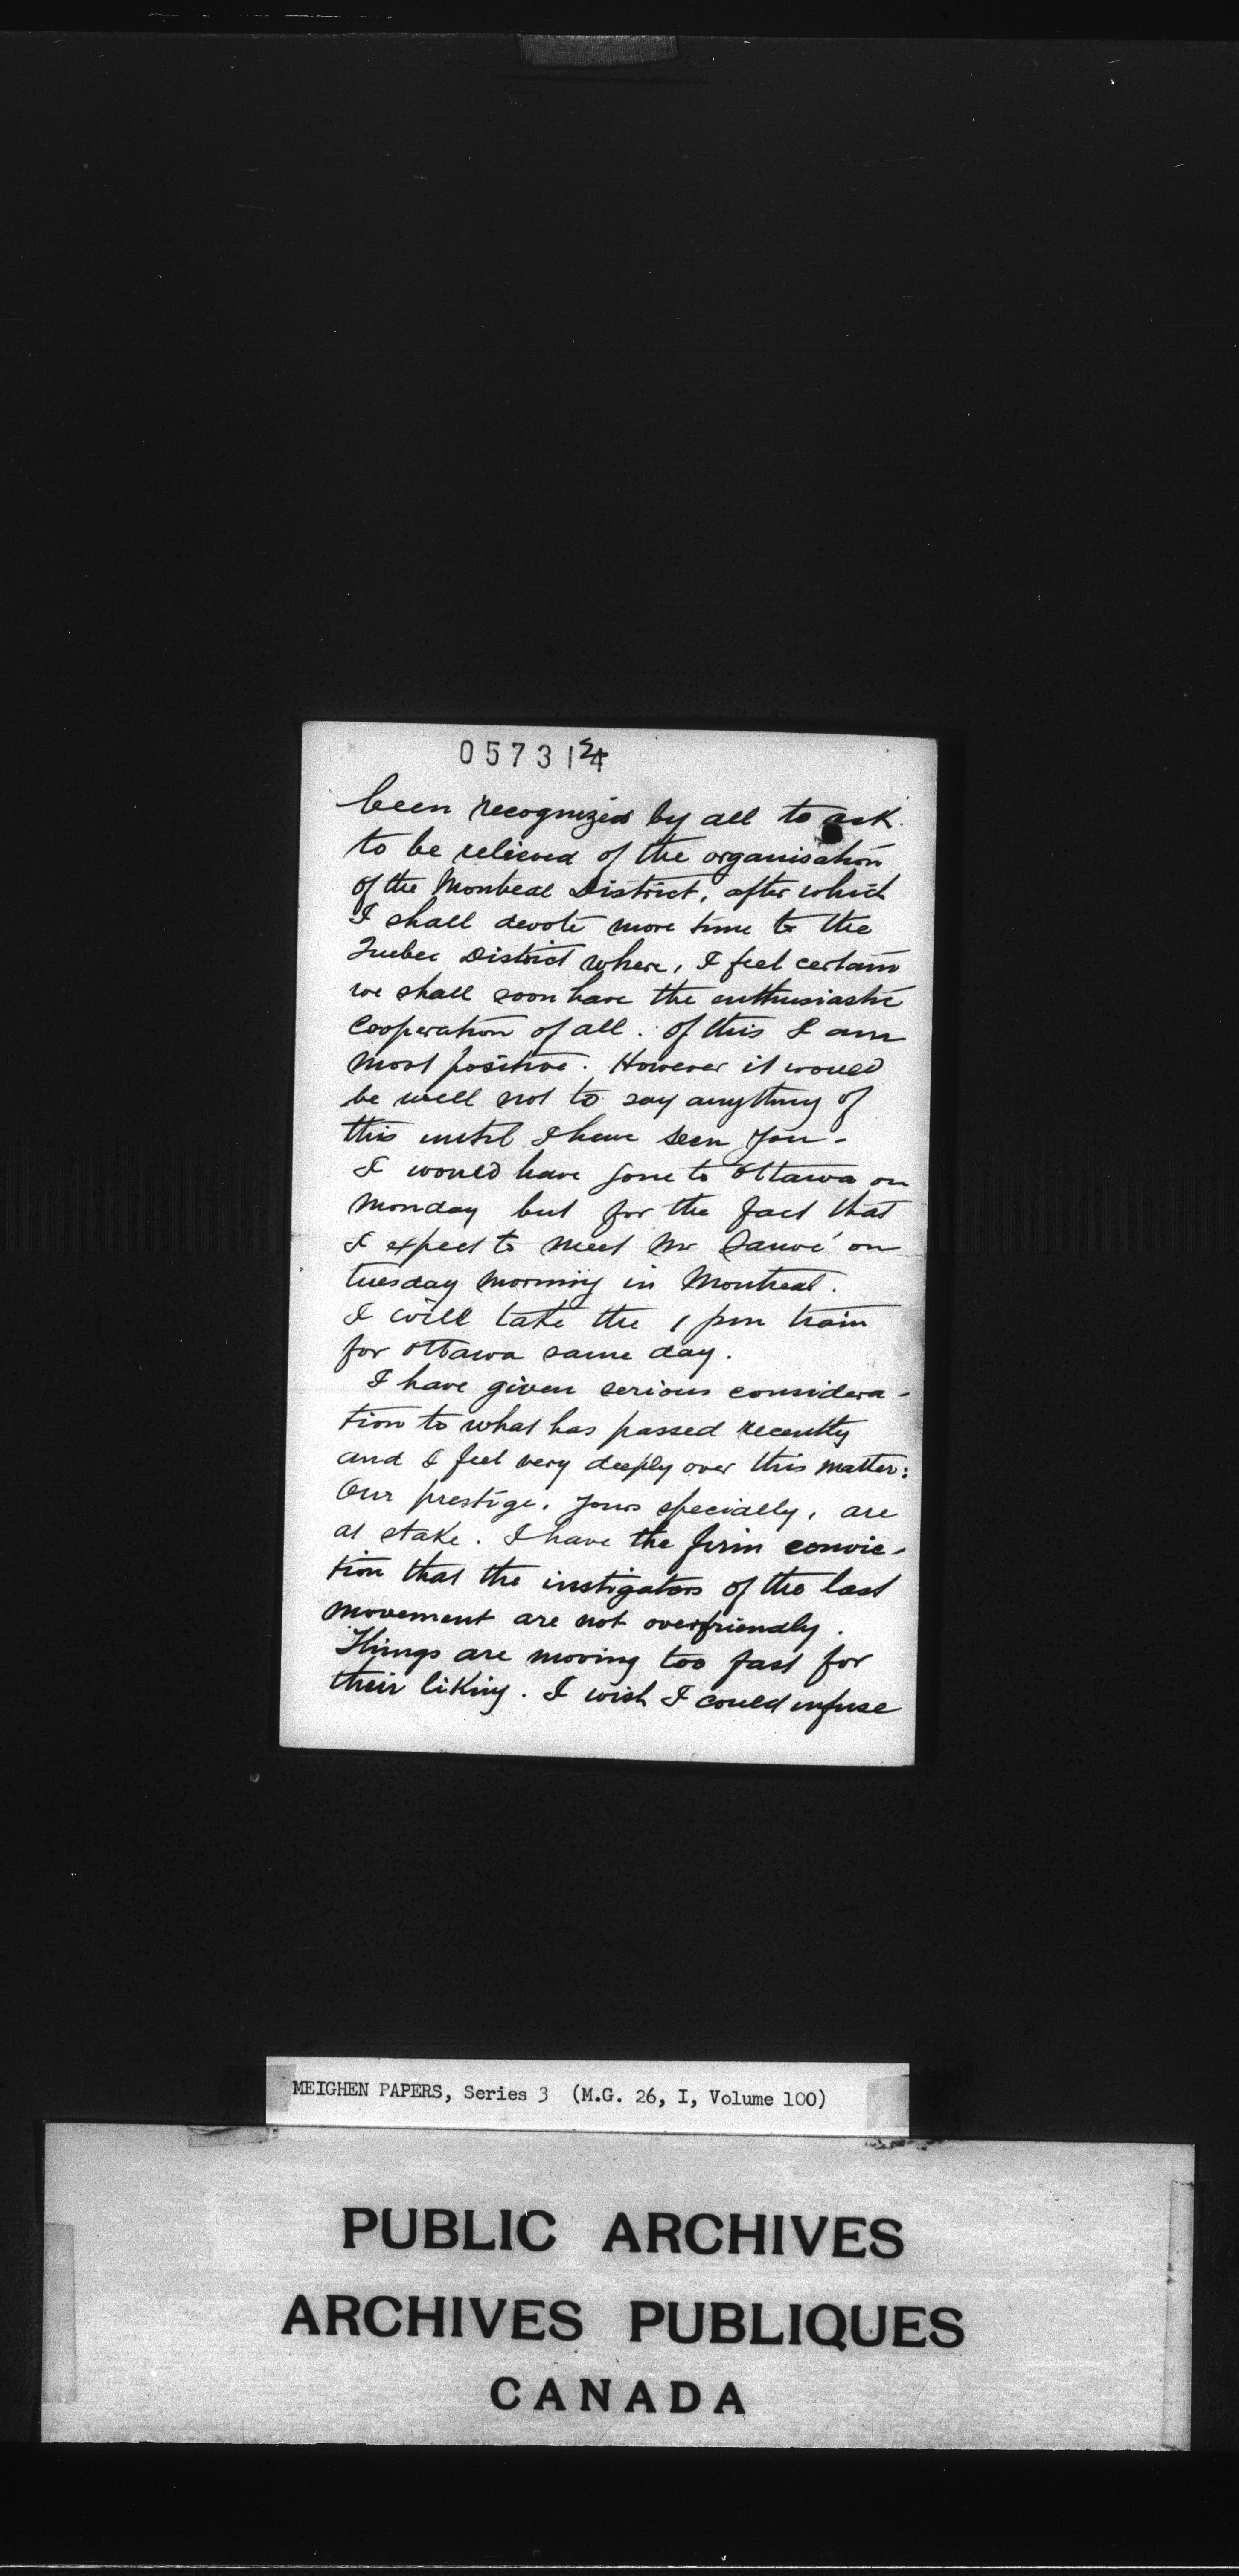 057314
2
been recognized by all to ask
to be relieved of the organisation
of the Montreal District, after which
I shall devote more time to the
Quebec District where, I feel certain
we shall soon have the enthusiastic
cooperation of all. Of this I am
most positive. However it would
be well not to say anything of
this until I have seen you -
I would have gone to Ottawa on
Monday but for the fact that
I expect to meet Mr Sauvé on
tuesday morning in Montreal.
I will take the 1 pm train
for Ottawa same day.
I have given serious considera-
tion to what has passed recently
and I feel very deeply over this matter:
Our prestige, yours specially, are
at stake. I have the firm convic-
tion that the instigators of the last
movement are not overfriendly.
Things are moving too fast for
their liking. I wish I could infuse
MEIGHEN PAPERS, Series 3 (M.G. 26, I, Volume 100)
PUBLIC ARCHIVES
ARCHIVES PUBLIQUES
CANADA